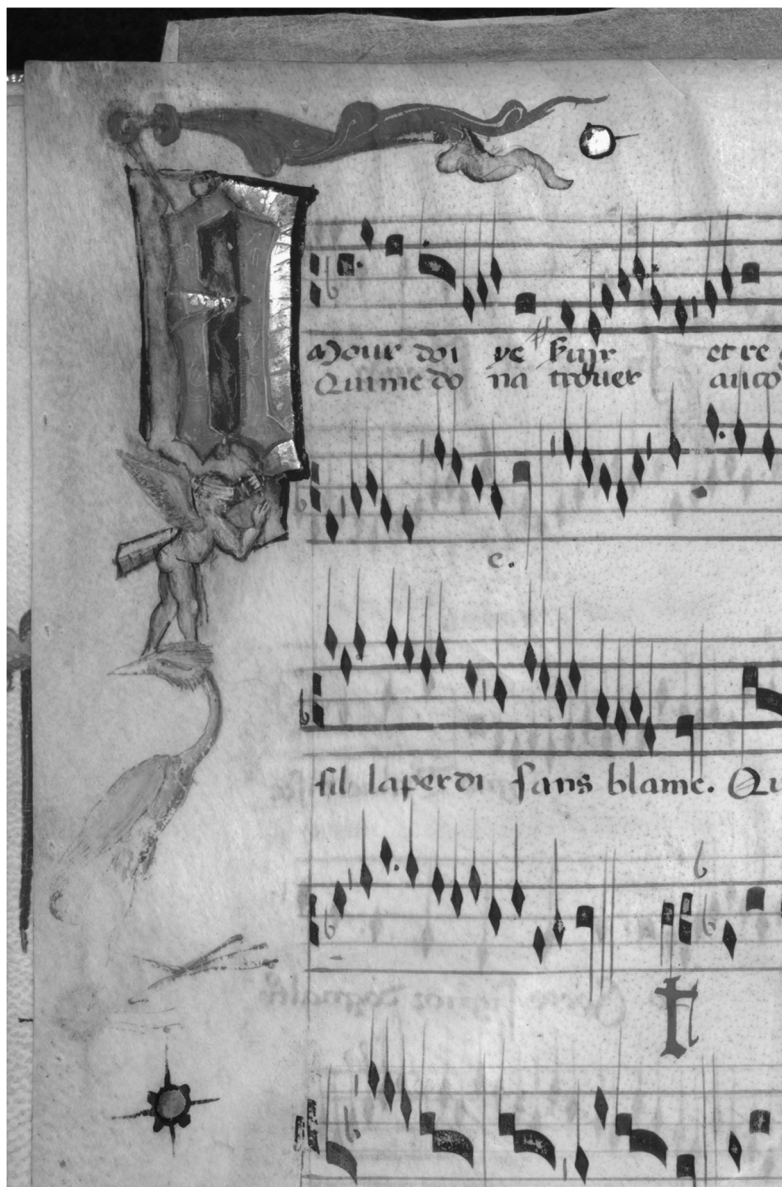 Mour doi ve fuir et re
Qui me do na trover au co
c.
fil la perdi sans blame. Qu
t